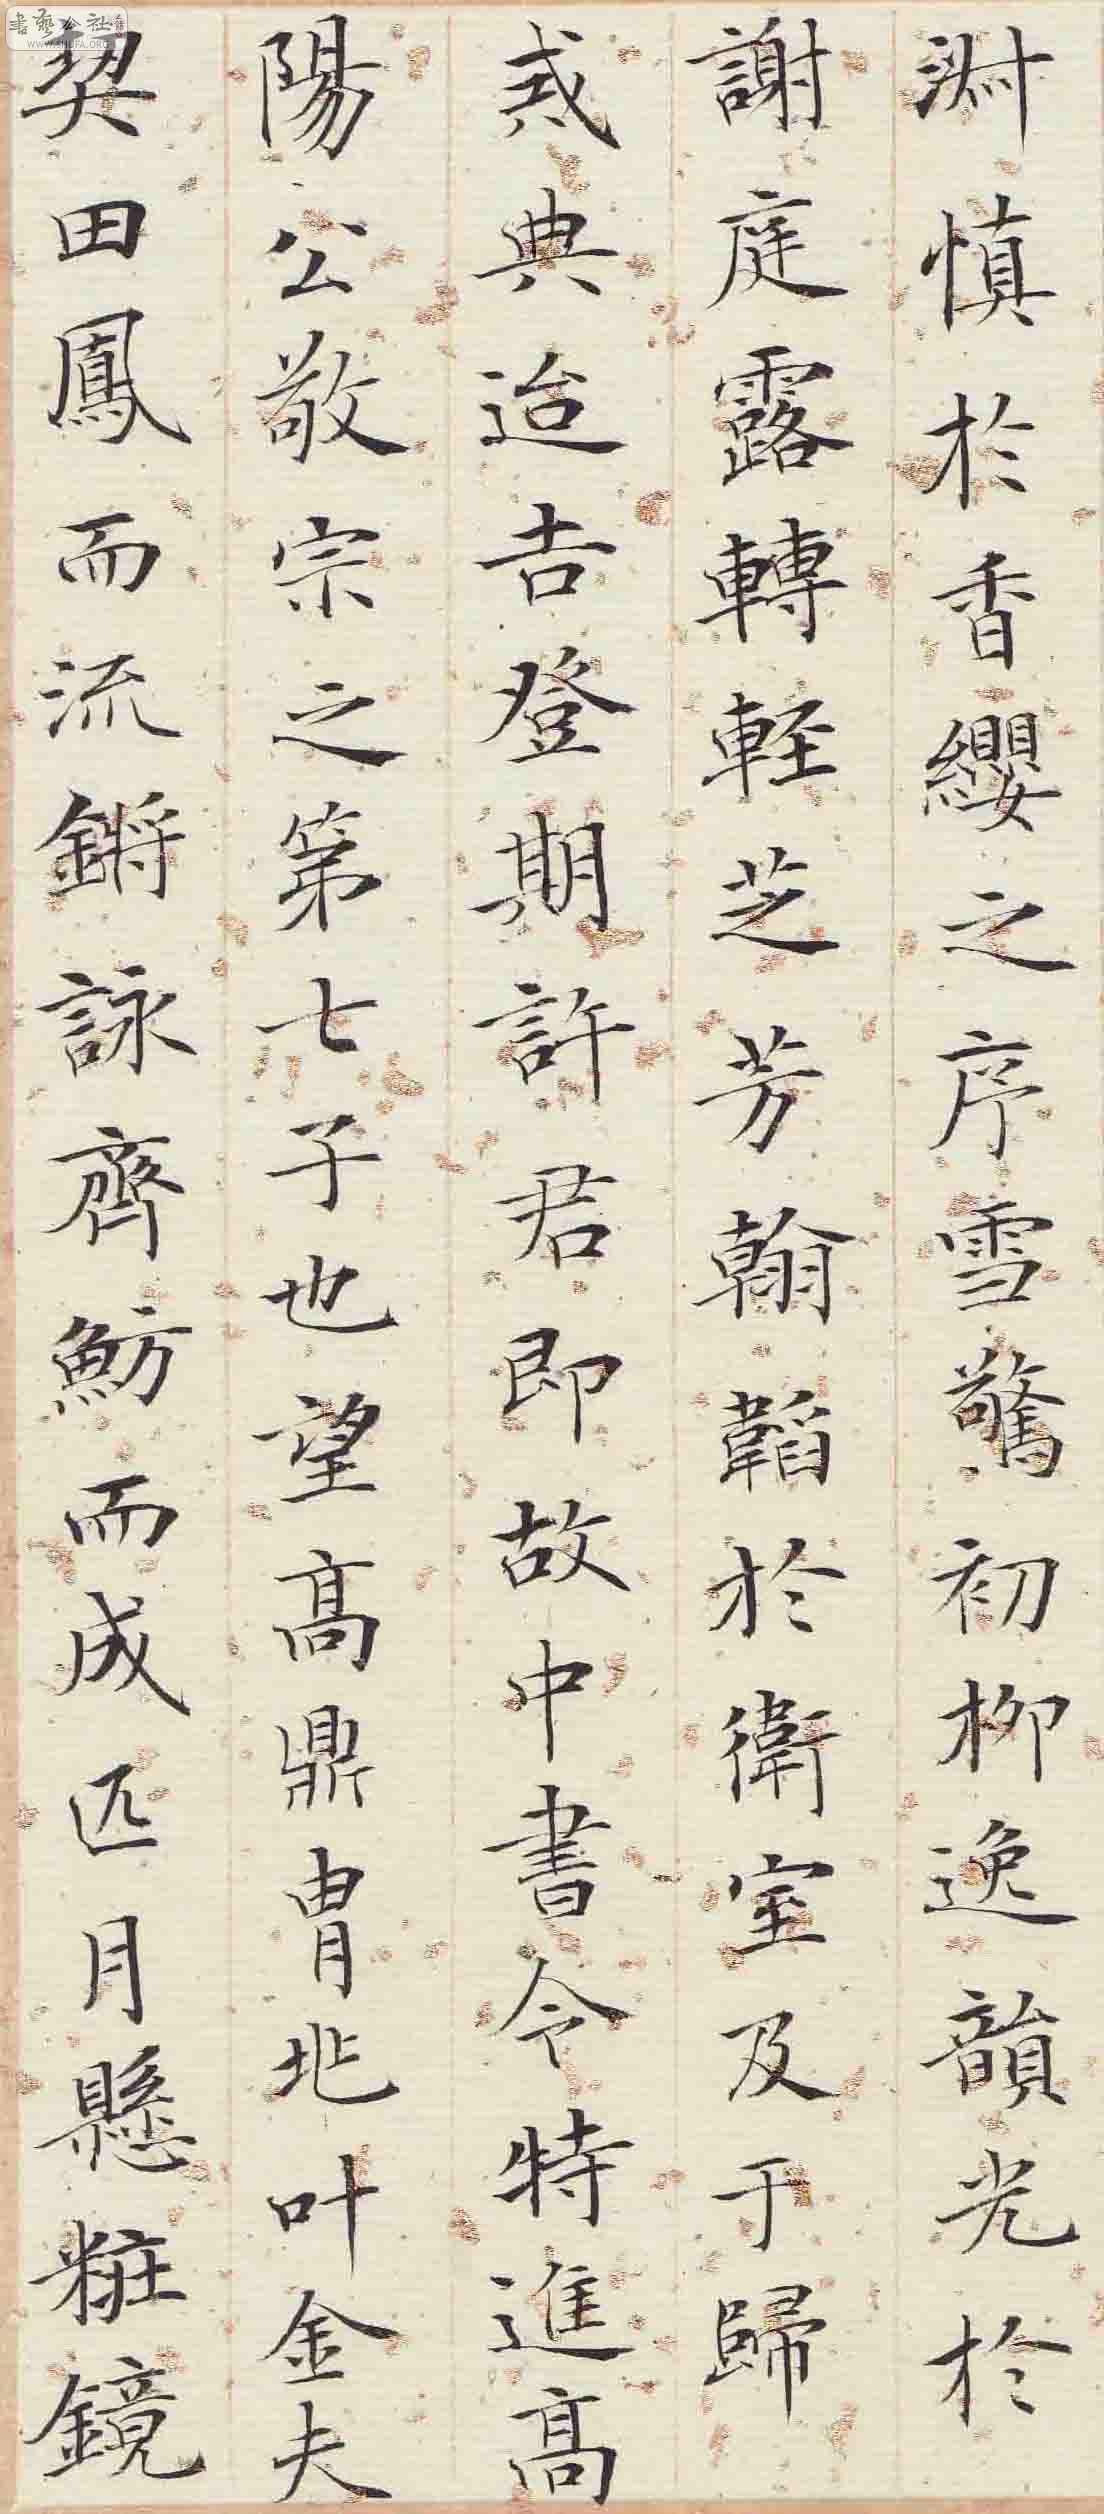 淵慎於香纓之序雪驚初柳逸韻光於
謝庭露轉輕芝芳翰韜於衛室及于歸
戒典迨吉登期許君即故中書令特進高
陽公敬宗之第七子也望高鼎胄地叶金夫
契田鳳而流鏘詠齊魴而成匹月懸粧鏡
書藝公社
WWW.SHUFA.ORG